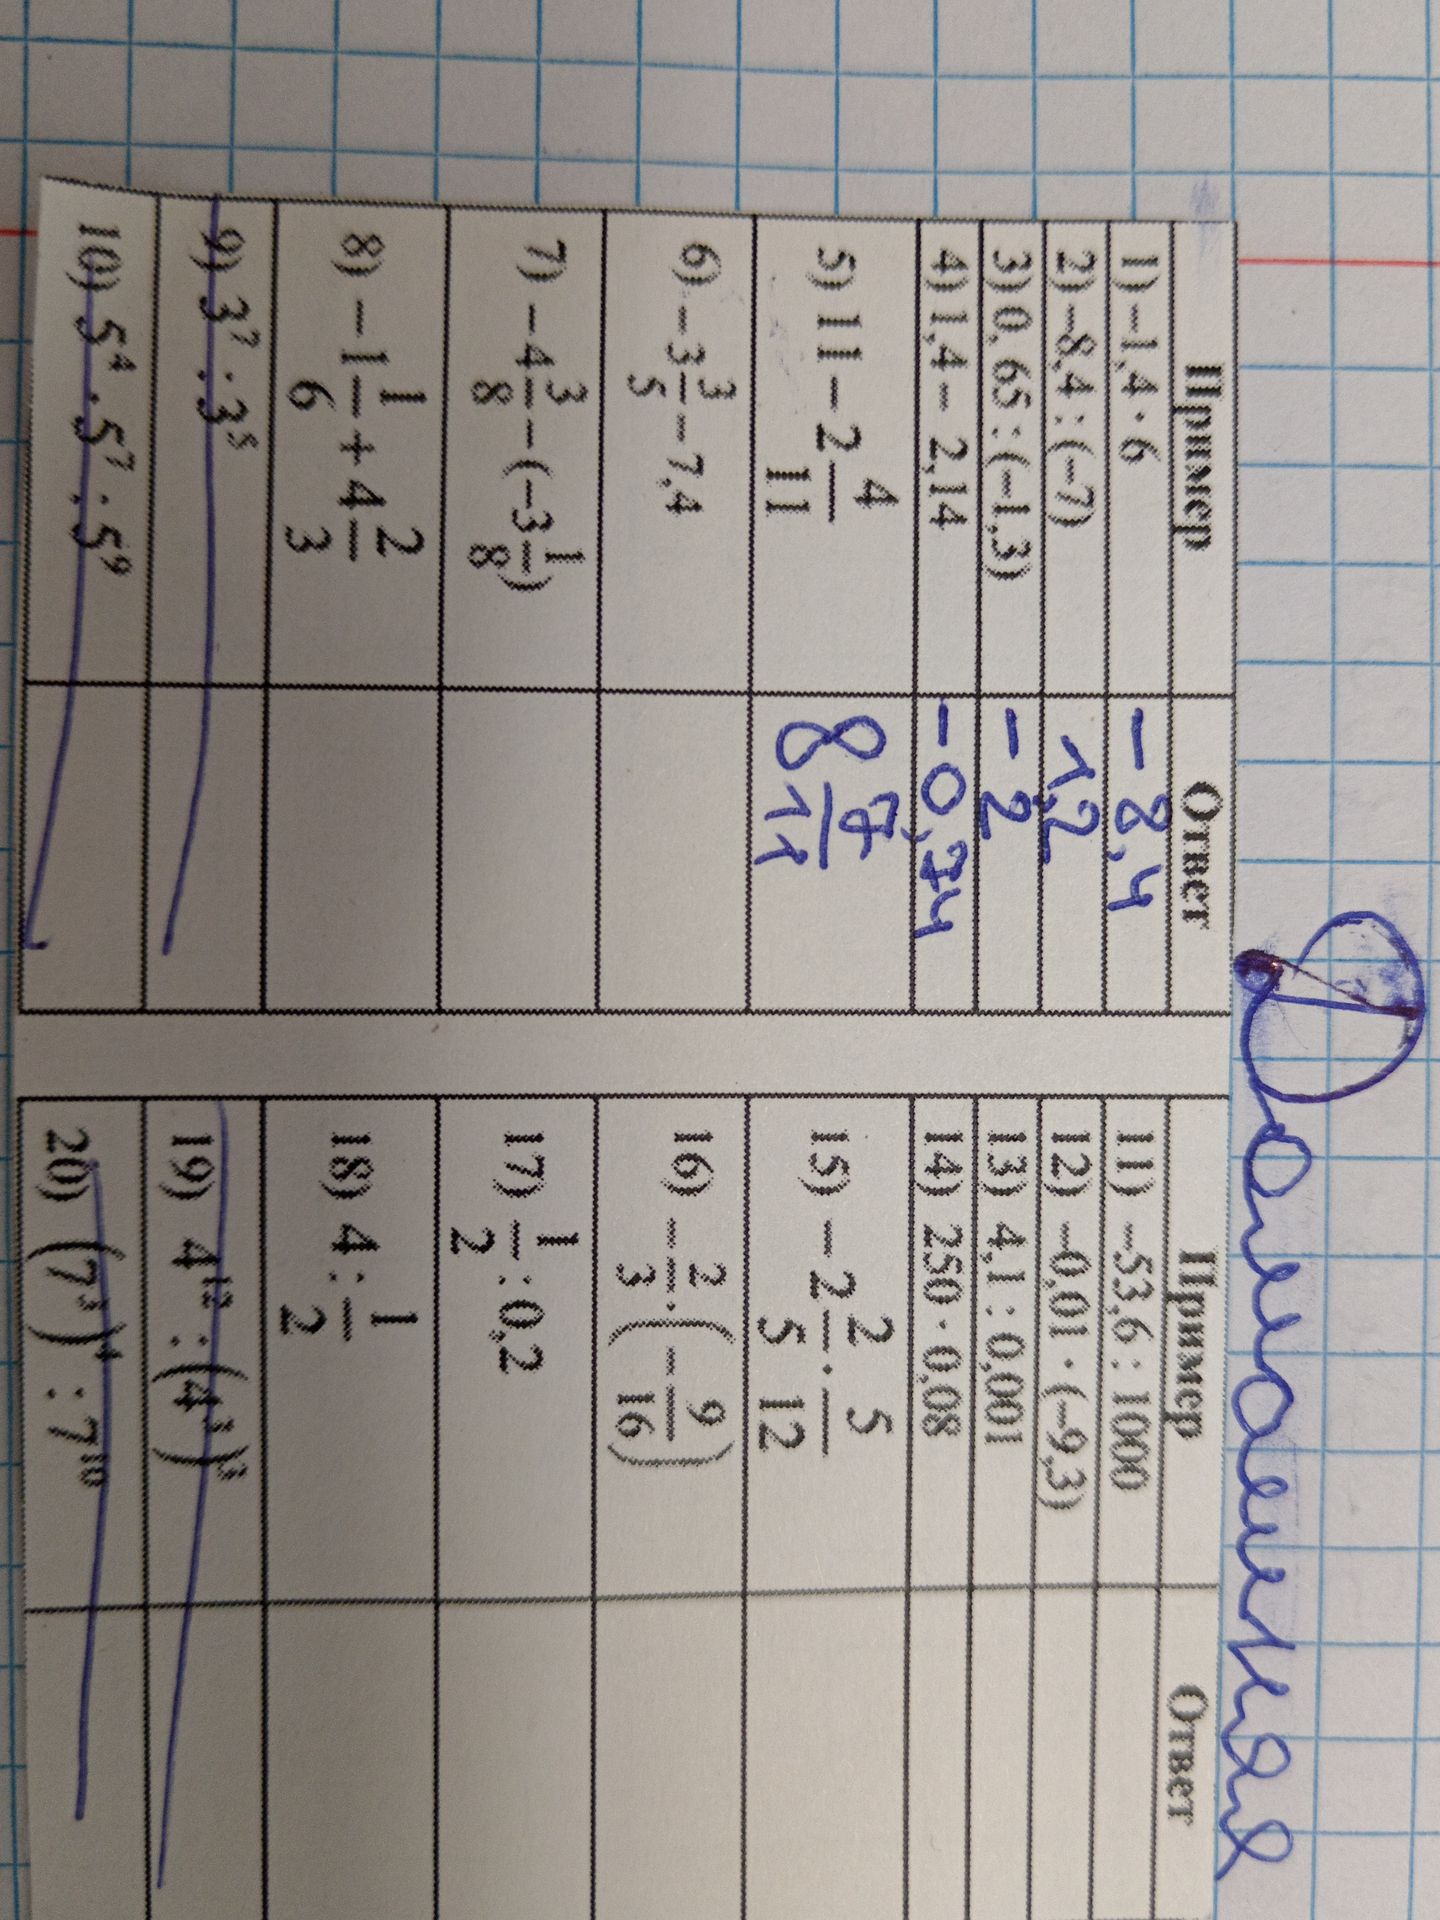 Домашняя
Пример Ответ
1) −1,4 · 6 −8,4
2) −8,4 : (−7) 1,2
3) 0,65 : (−1,3) −2
4) 1,4 − 2,14 −0,74
5) 11 − 2 4/11 8 7/11
6) −3 3/5 − 7,4
7) −4 3/8 − (−3 1/8)
8) −1 1/6 + 4 2/3
9) 3⁷ : 3⁵
10) 5⁴ · 5⁷ : 5⁹
Пример Ответ
11) −53,6 : 1000
12) −0,01 · (−9,3)
13) 4,1 : 0,001
14) 250 · 0,08
15) −2 2/5 · 5/12
16) −2/3 · (−9/16)
17) 1/2 : 0,2
18) 4 : 1/2
19) 4¹² : (4³)³
20) (7³)⁴ : 7¹⁰